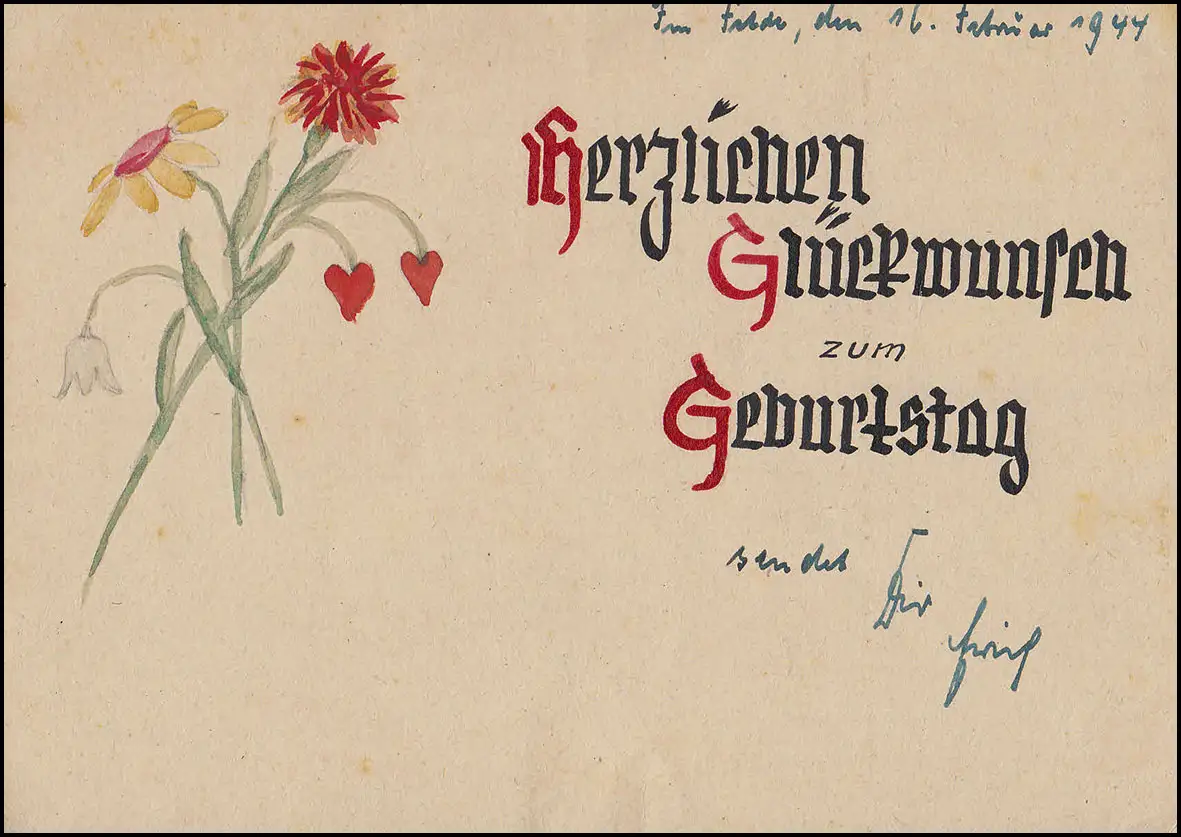 Im Felde, den 16. Februar 1944
Herzlichen
Glückwunsch
zum
Geburtstag
sendet
Dir
Erich